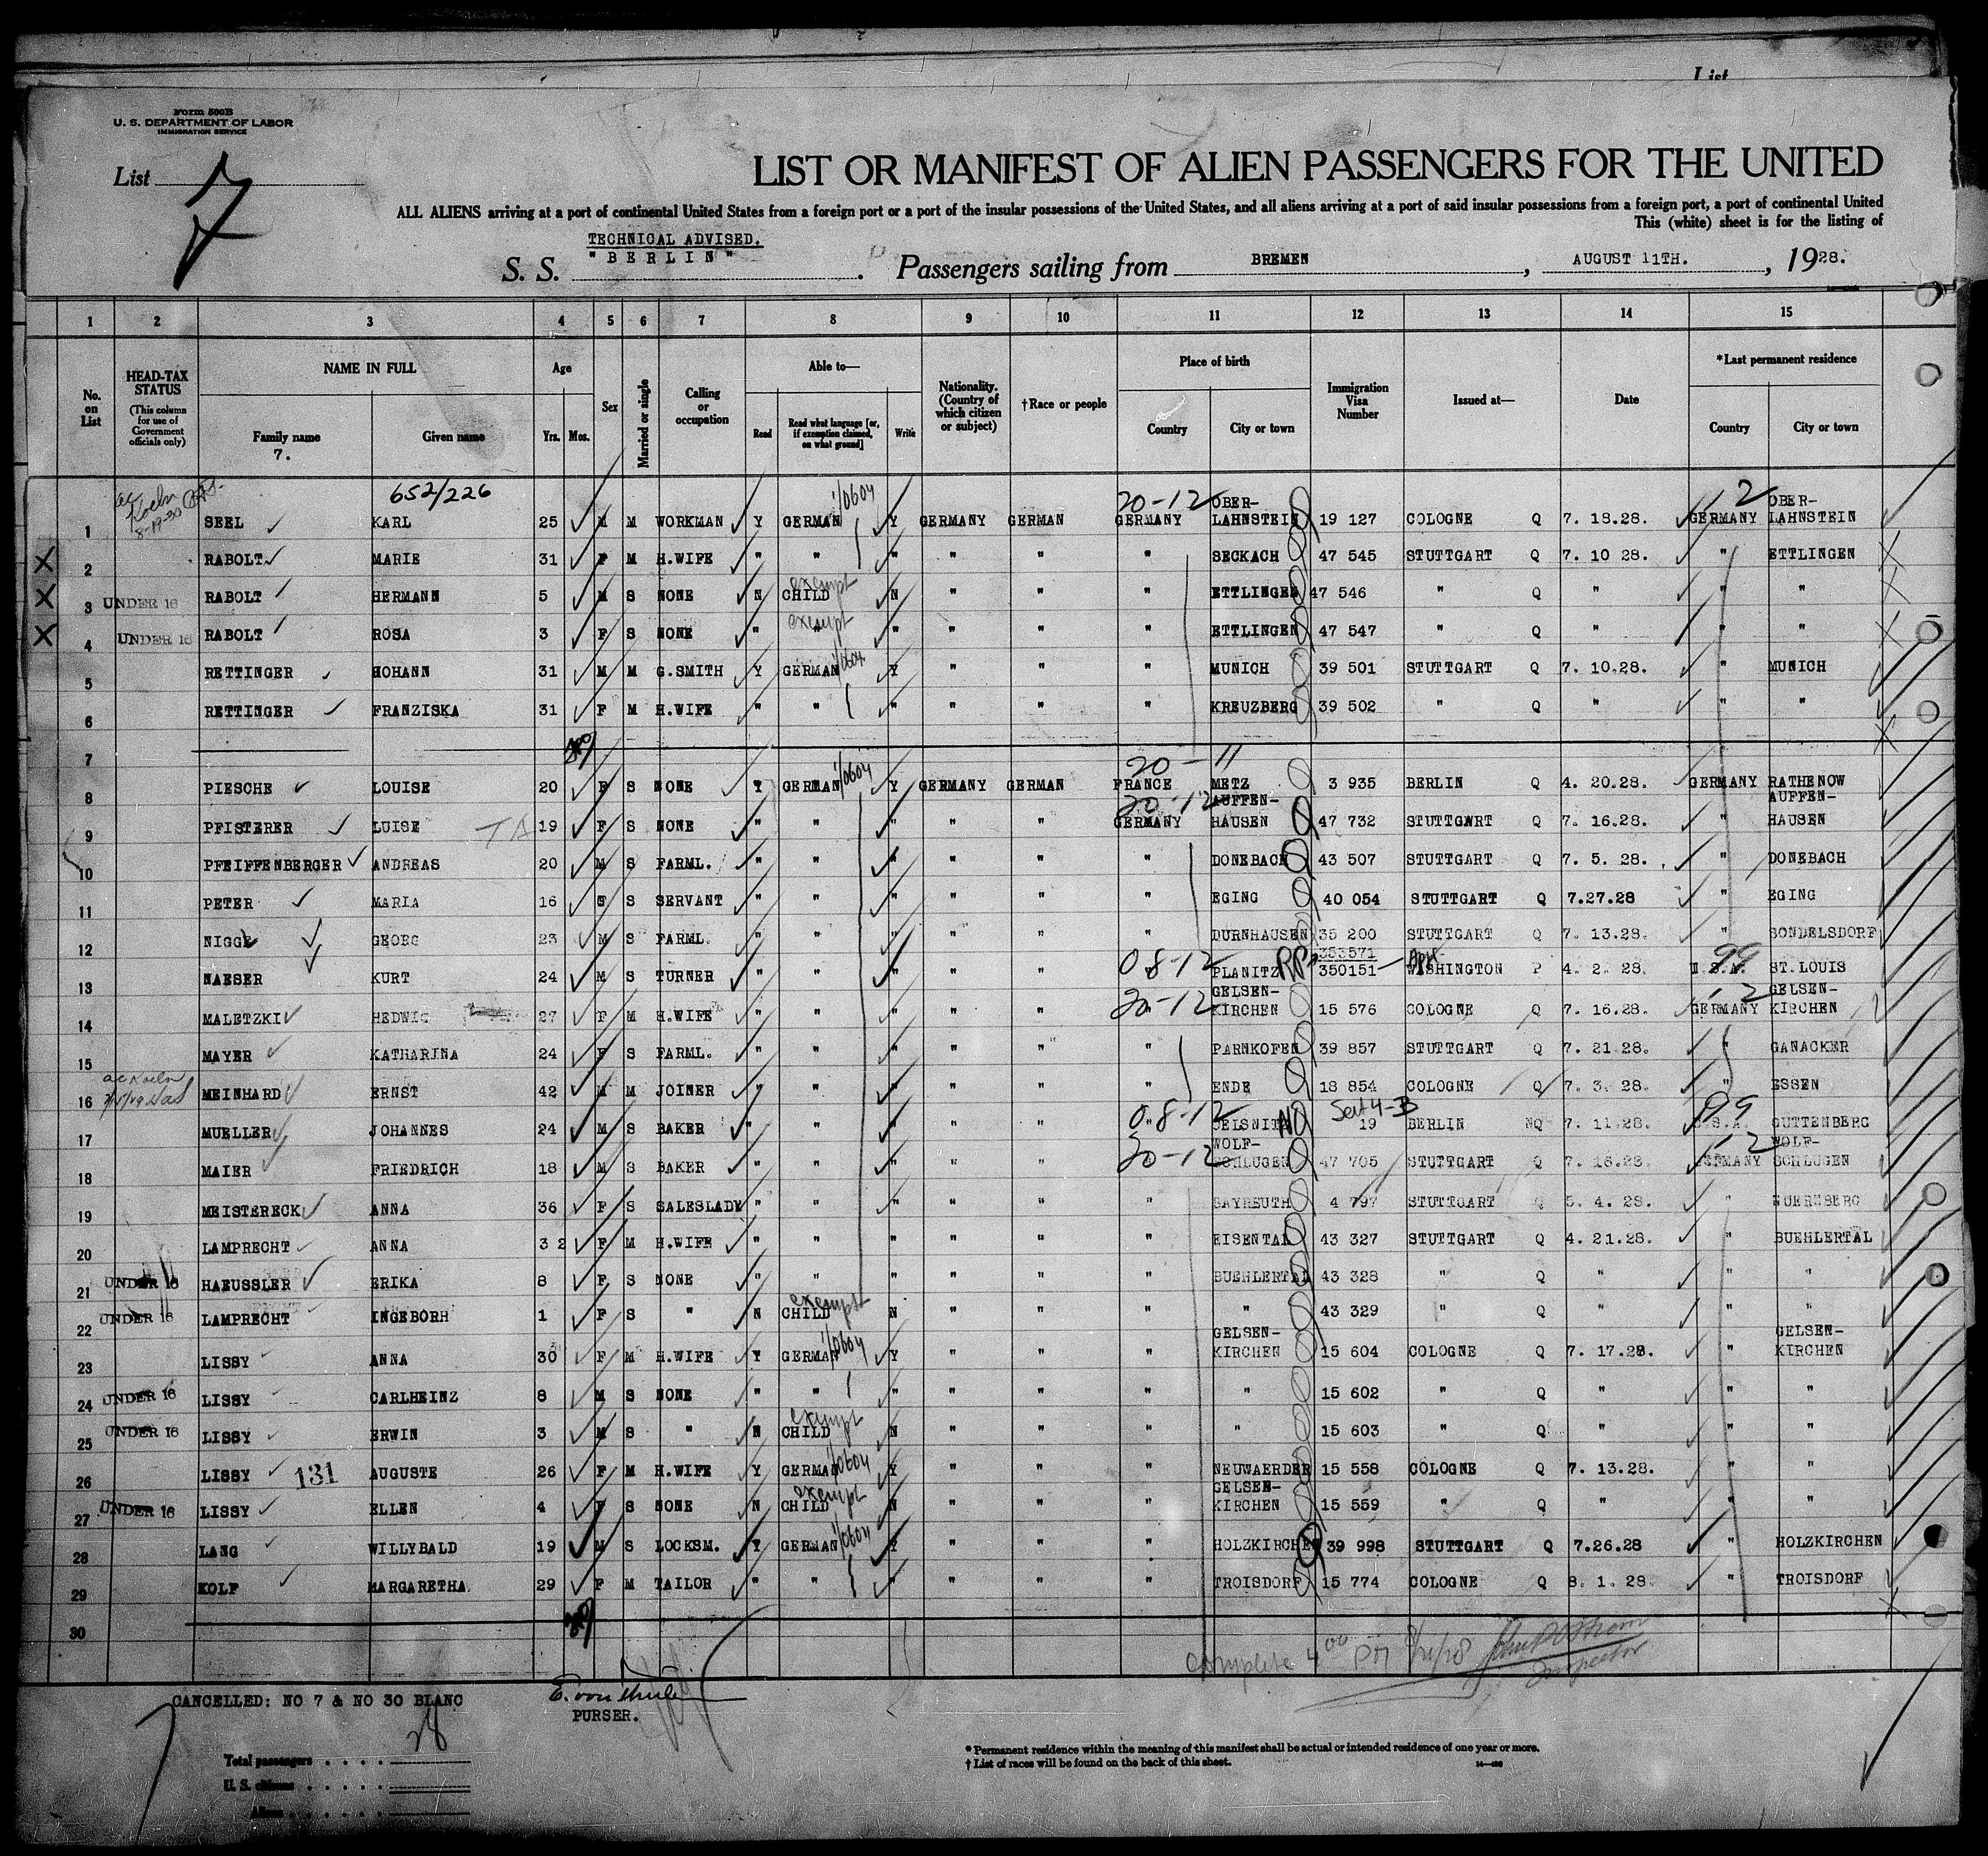 List
Form 500B
U. S. DEPARTMENT OF LABOR
IMMIGRATION SERVICE
List 7
LIST OR MANIFEST OF ALIEN PASSENGERS FOR THE UNITED
ALL ALIENS arriving at a port of continental United States from a foreign port or a port of the insular possessions of the United States, and all aliens arriving at a port of said insular possessions from a foreign port, a port of continental United
This (white) sheet is for the listing of
TECHNICAL ADVISED.
S. S. "BERLIN" . Passengers sailing from BREMEN , AUGUST 11TH. , 1928.
1 2 3 4 5 6 7 8 9 10 11 12 13 14 15
No. on List
HEAD-TAX STATUS (This column for use of Government officials only)
NAME IN FULL
Family name Given name
7.
Age
Yrs. Mos.
Sex
Married or single
Calling or occupation
Able to—
Read Read what language [or, if exemption claimed, on what ground] Write
Nationality. (Country of which citizen or subject)
†Race or people
Place of birth
Country City or town
Immigration Visa Number
Issued at—
Date
*Last permanent residence
Country City or town
652/226
1 ac Koeln 8-19-30 SEEL KARL 25 M M WORKMAN Y GERMAN 1/0604 Y GERMANY GERMAN 20-12 GERMANY OBER-LAHNSTEIN 19 127 COLOGNE Q 7. 18.28. 12 GERMANY OBER-LAHNSTEIN
X 2 RABOLT MARIE 31 F M H.WIFE " " " " " " SECKACH 47 545 STUTTGART Q 7. 10 28. " ETTLINGEN
X 3 UNDER 16 RABOLT HERMANN 5 M S NONE N exempt CHILD N " " " ETTLINGEN 47 546 " Q " " "
X 4 UNDER 16 RABOLT ROSA 3 F S NONE " exempt " " " " " ETTLINGEN 47 547 " Q " " "
5 RETTINGER HOHANN 31 M M G.SMITH Y GERMAN 1/0604 Y " " " MUNICH 39 501 STUTTGART Q 7. 10.28. " MUNICH
6 RETTINGER FRANZISKA 31 F M H.WIFE " " " " " " KREUZBERG 39 502 " Q " " "
7
8 PIESCHE LOUISE 20 F S NONE Y GERMAN 1/0604 Y GERMANY GERMAN 20-11 FRANCE METZ 3 935 BERLIN Q 4. 20.28. GERMANY RATHENOW
9 PFISTERER LUISE TA 19 F S NONE " " " " " 20-12 GERMANY AUFFEN-HAUSEN 47 732 STUTTGART Q 7. 16.28. " AUFFEN-HAUSEN
10 PFEIFFENBERGER ANDREAS 20 M S FARML. " " " " " " DONEBACH 43 507 STUTTGART Q 7. 5. 28. " DONEBACH
11 PETER MARIA 16 F S SERVANT " " " " " " EGING 40 054 STUTTGART Q 7.27.28 " EGING
12 NIGGL GEORG 23 M S FARML. " " " " " " DURNHAUSEN 35 200 STUTTGART Q 7. 13.28. " SONDELSDORF
13 NAESER KURT 24 M S TURNER " " " " " 08-12 " PLANITZ RP 353571 350151 WASHINGTON P 4. 2. 28. 99 U.S.A. ST. LOUIS
14 MALETZKI HEDWIG 27 F M H.WIFE " " " " " 20-12 " GELSEN-KIRCHEN 15 576 COLOGNE Q 7. 16.28. 12 GERMANY GELSEN-KIRCHEN
15 MAYER KATHARINA 24 F S FARML. " " " " " " PARNKOFEN 39 857 STUTTGART Q 7. 21.28. " GANACKER
16 ac Koeln MEINHARD ERNST 42 M M JOINER " " " " " " ENDE 18 854 COLOGNE Q 7. 3. 28. " ESSEN
17 MUELLER JOHANNES 24 M S BAKER " " " " " 08-12 " OELSNITZ NQ Sec 4-B 19 BERLIN NQ 7. 11.28. 99 U.S.A. GUTTENBERG
18 MAIER FRIEDRICH 18 M S BAKER " " " " " 20-12 WOLF-SCHLUGEN 47 705 STUTTGART Q 7. 16.28. 12 GERMANY WOLF-SCHLUGEN
19 MEISTERECK ANNA 36 F S SALESLADY " " " " " " BAYREUTH 4 797 STUTTGART Q 5. 4. 28. " NUERNBERG
20 LAMPRECHT ANNA 3 2 F M H.WIFE " " " " " " EISENTAL 43 327 STUTTGART Q 4. 21.28. " BUEHLERTAL
21 UNDER 16 HAEUSSLER ERIKA 8 F S NONE " " " " " " BUEHLERTAL 43 328 " Q " " "
22 UNDER 16 LAMPRECHT INGEBORH 1 F S " N exempt CHILD N " " " " 43 329 " Q " " "
23 LISSY ANNA 30 F M H.WIFE Y GERMAN 1/0604 Y " " " GELSEN-KIRCHEN 15 604 COLOGNE Q 7. 17.28. " GELSEN-KIRCHEN
24 UNDER 16 LISSY CARLHEINZ 8 M S NONE " " " " " " " 15 602 " Q " " "
25 UNDER 16 LISSY ERWIN 3 M S " N exempt CHILD N " " " " 15 603 " Q " " "
26 LISSY 131 AUGUSTE 26 F M H.WIFE Y GERMAN 1/0604 Y " " " NEUWAERDER 15 558 COLOGNE Q 7. 13.28. " "
27 UNDER 16 LISSY ELLEN 4 F S NONE N exempt CHILD N " " " GELSEN-KIRCHEN 15 559 " Q " " "
28 LANG WILLYBALD 19 M S LOCKSM. Y GERMAN 1/0604 Y " " " HOLZKIRCHEN 39 998 STUTTGART Q 7.26.28 " HOLZKIRCHEN
29 KOLF MARGARETHA 29 F M TAILOR " " " " " " TROISDORF 15 774 COLOGNE Q 8. 1. 28. " TROISDORF
30
complete 4 00 PM 8/21/28 Inspector
CANCELLED: NO 7 & NO 30 BLANC
PURSER.
Total passengers . . . . 28
U. S. citizens . . . . .
Aliens . . . . . .
* Permanent residence within the meaning of this manifest shall be actual or intended residence of one year or more.
† List of races will be found on the back of this sheet.